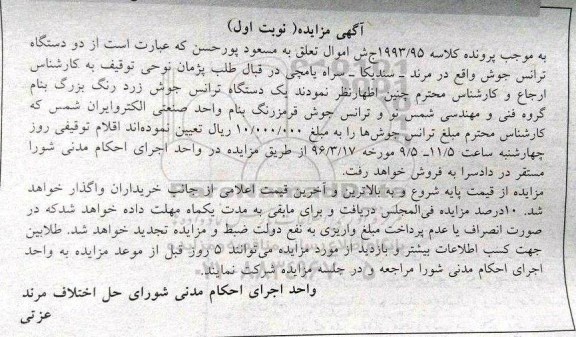 آگهی مزایده( نوبت اول)
به موجب پرونده کلاسه ۱۹۹۳/۹۵ج‌ش اموال تعلق به مسعود پورحسن که عبارت است از دو دستگاه
ترانس جوش واقع در مرند ـ سندیکا ـ سراه یامچی در قبال طلب پژمان نوحی توقیف به کارشناس
ارجاع و کارشناس محترم چنین اظهارنظر نمودند یک دستگاه ترانس جوش زرد رنگ بزرگ بنام
گروه فنی و مهندسی شمس نو و ترانس جوش قرمزرنگ بنام واحد صنعتی الکترو‌ایران شمس که
کارشناس محترم مبلغ ترانس جوش‌ها را به مبلغ ۱۰/۰۰۰/۰۰۰ ریال تعیین نموده‌اند اقلام توقیفی روز
چهارشنبه ساعت ۱۱/۵ـ ۹/۵ مورخه ۹۶/۳/۱۷ از طریق مزایده در واحد اجرای احکام مدنی شورا
مستقر در دادسرا به فروش خواهد رفت.
مزایده از قیمت پایه شروع و به بالاترین و آخرین قیمت اعلامی از جانب خریداران واگذار خواهد
شد. ۱۰درصد مزایده فی‌المجلس دریافت و برای مابقی به مدت یکماه مهلت داده خواهد شدکه در
صورت انصراف یا عدم پرداخت مبلغ واریزی به نفع دولت ضبط و مزایده تجدید خواهد شد. طلابین
جهت کسب اطلاعات بیشتر و بازدید از مورد مزایده می‌توانند ۵ روز قبل از موعد مزایده به واحد
اجرای احکام مدنی شورا مراجعه و در جلسه مزایده شرکت نمایند.
واحد اجرای احکام مدنی شورای حل اختلاف مرند
عزتی